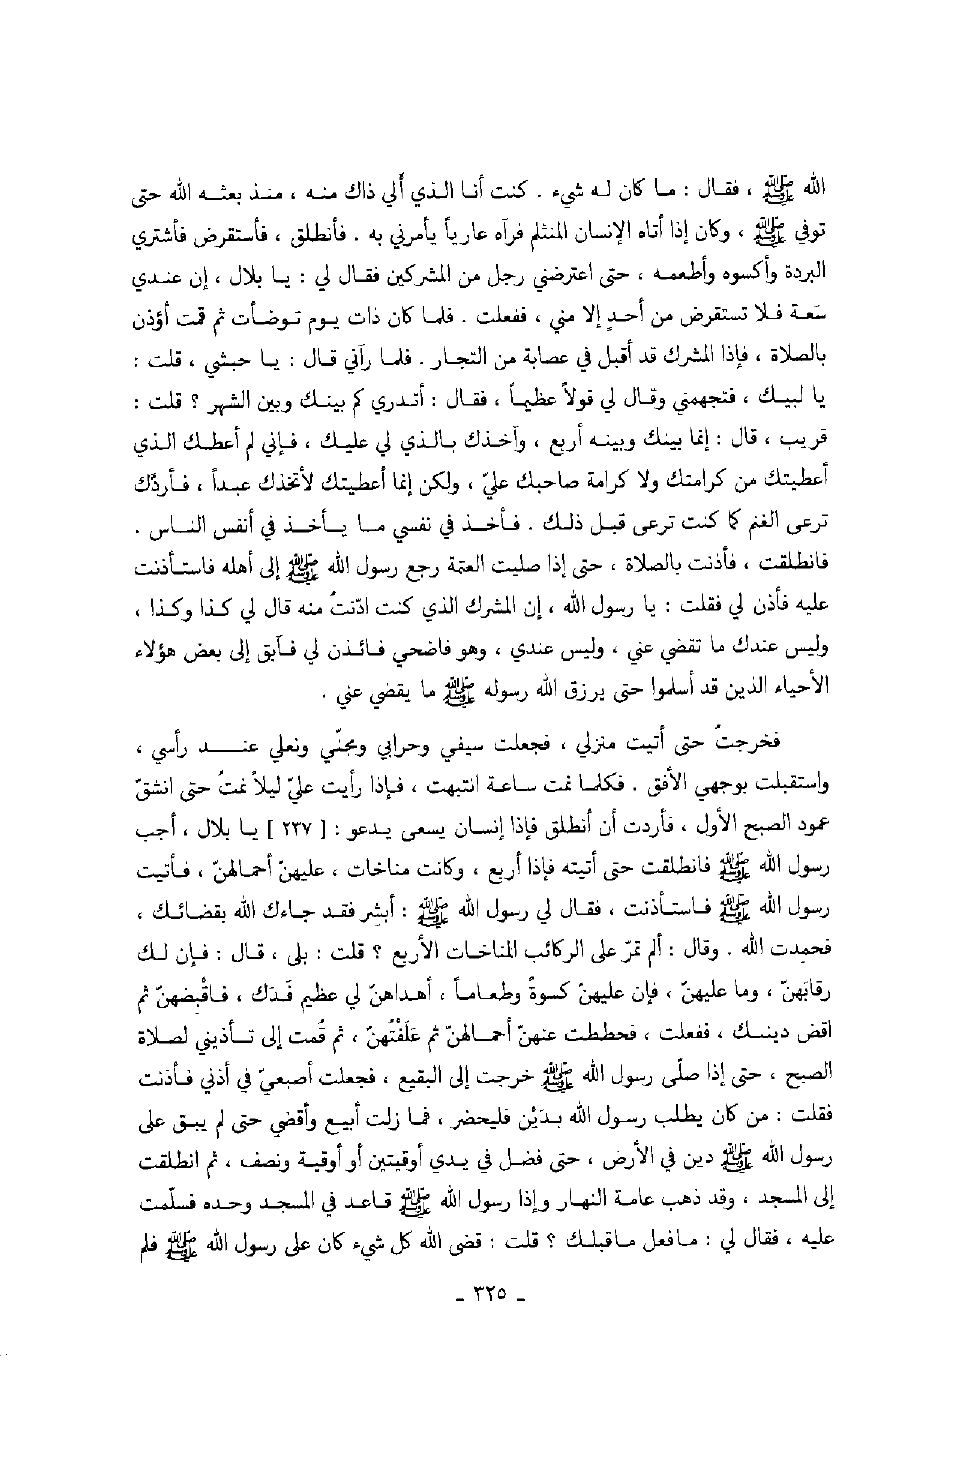 الله ﷺ ، فقال : ما كان له شيء . كنت أنا الذي أَلي ذاك منه ، منذ بعثه الله حتى
توفي ﷺ ، وكان إذا أتاه الإنسان المنثلم فرآه عارياً يأمرني به . فأنطلق ، فأستقرض فأشتري
البردة وأكسوه وأطعمه ، حتى اعترضني رجل من المشركين فقال لي : يا بلال ، إن عندي
سَعة فلا تستقرض من أحدٍ إلا مني ، ففعلت . فلما كان ذات يوم توضأت ثم قمت أؤذن
بالصلاة ، فإذا المشرك قد أقبل في عصابة من التجار . فلما رآني قال : يا حبشي ، قلت :
يا لبيك ، فتجهمني وقال لي قولاً عظيماً ، فقال : أتدري كم بينك وبين الشهر ؟ قلت :
قريب ، قال : إنما بينك وبينه أربع ، وآخذك بالذي لي عليك ، فإني لم أعطك الذي
أعطيتك من كرامتك ولا كرامة صاحبك عليّ ، ولكن إنما أعطيتك لأتخذك عبداً ، فأردّك
ترعى الغنم كما كنت ترعى قبل ذلك . فأخذ في نفسي ما يأخذ في أنفس الناس .
فانطلقت ، فأذنت بالصلاة ، حتى إذا صليت العتمة رجع رسول الله ﷺ إلى أهله فاستأذنت
عليه فأذن لي فقلت : يا رسول الله ، إن المشرك الذي كنت ادّنتُ منه قال لي كذا وكذا ،
وليس عندك ما تقضي عني ، وليس عندي ، وهو فاضحي فائذن لي فآبق إلى بعض هؤلاء
الأحياء الذين قد أسلموا حتى يرزق الله رسوله ﷺ ما يقضي عني .
فخرجتُ حتى أتيت منزلي ، فجعلت سيفي وحرابي ومجنّي ونعلي عند رأسي ،
واستقبلت بوجهي الأفق . فكلما نمت ساعة انتبهت ، فإذا رأيت عليّ ليلاً نمتُ حتى انشقّ
عمود الصبح الأول ، فأردت أن أنطلق فإذا إنسان يسعى يدعو : [ ٢٣٧ ] يا بلال ، أجب
رسول الله ﷺ فانطلقت حتى أتيته فإذا أربع ، وكانت مناخات ، عليهنّ أحمالهنّ ، فأتيت
رسول الله ﷺ فاستأذنت ، فقال لي رسول الله ﷺ : أبشر فقد جاءك الله بقضائك ،
فحمِدت الله . وقال : ألم تمرّ على الركائب المناخات الأربع ؟ قلت : بلى ، قال : فإن لك
رقابَهنّ ، وما عليهنّ ، فإن عليهنّ كسوةً وطعاماً ، أهداهنّ لي عظيم فَدَك ، فاقْبضهنّ ثم
اقض دينك ، ففعلت ، فحططت عنهنّ أحمالهنّ ثم عَلَفْتُهنّ ، ثم قُمت إلى تأذيني لصلاة
الصبح ، حتى إذا صلّى رسول الله ﷺ خرجت إلى البقيع ، فجعلت أصبعيّ في أذني فأذنت
فقلت : من كان يطلب رسول الله بدَيْن فليحضر ، فما زلت أبيع وأقضي حتى لم يبق على
رسول الله ﷺ دين في الأرض ، حتى فضل في يدي أوقيتين أو أوقية ونصف ، ثم انطلقت
إلى المسجد ، وقد ذهب عامة النهار وإذا رسول الله ﷺ قاعد في المسجد وحده فسلّمت
عليه ، فقال لي : مافعل ماقبلك ؟ قلت : قضى الله كل شيء كان على رسول الله ﷺ فلم
ـ ٣٢٥ ـ